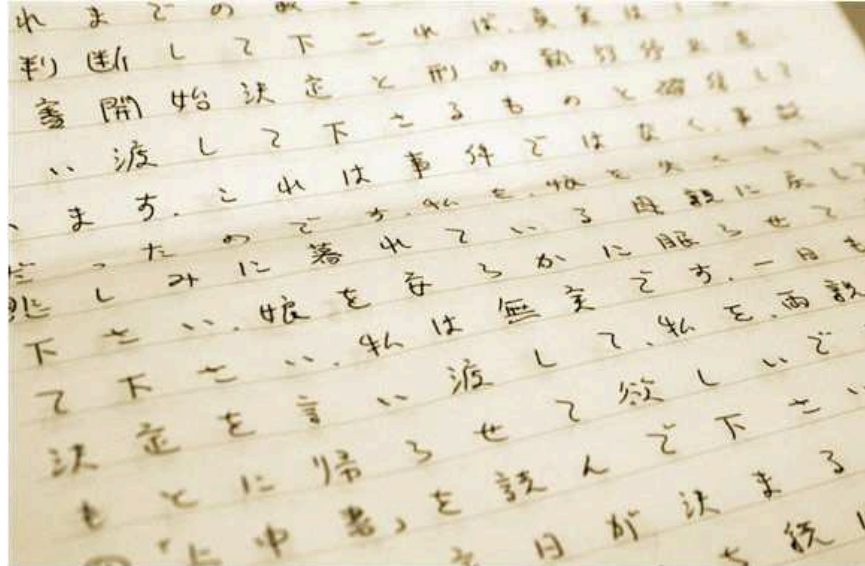 れまでの
判断して下されば、真実は
審開始決定と刑の執行停止を
い渡して下さるものと確信し
います。これは事件ではなく、事故
だったのです。私を、娘を失くし
悲しみに暮れている母親に戻して
下さい。娘を安らかに眠らせて
て下さい。私は無実です。一日も
決定を言い渡して、私を、両親
もとに帰らせて欲しいで
の「上申書」を読んで下さい
日が決まる
続